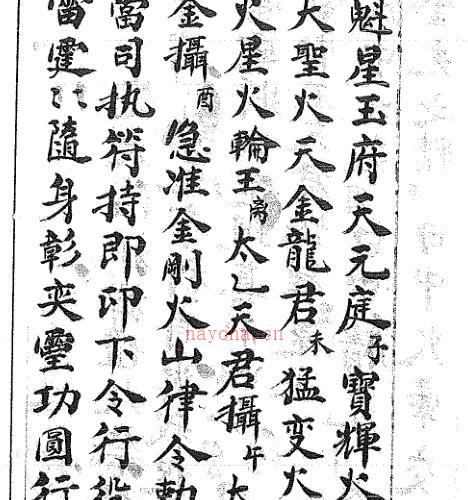 魁星玉府天元庭子寶輝火
大聖火天金龍君未猛变火
火星火輪王离太乙天君攝午
金攝酉急准金剛火山律令勅
當司执符持即印下令行
雷霆〻隨身彰奕靈功圓行
nayona.cn